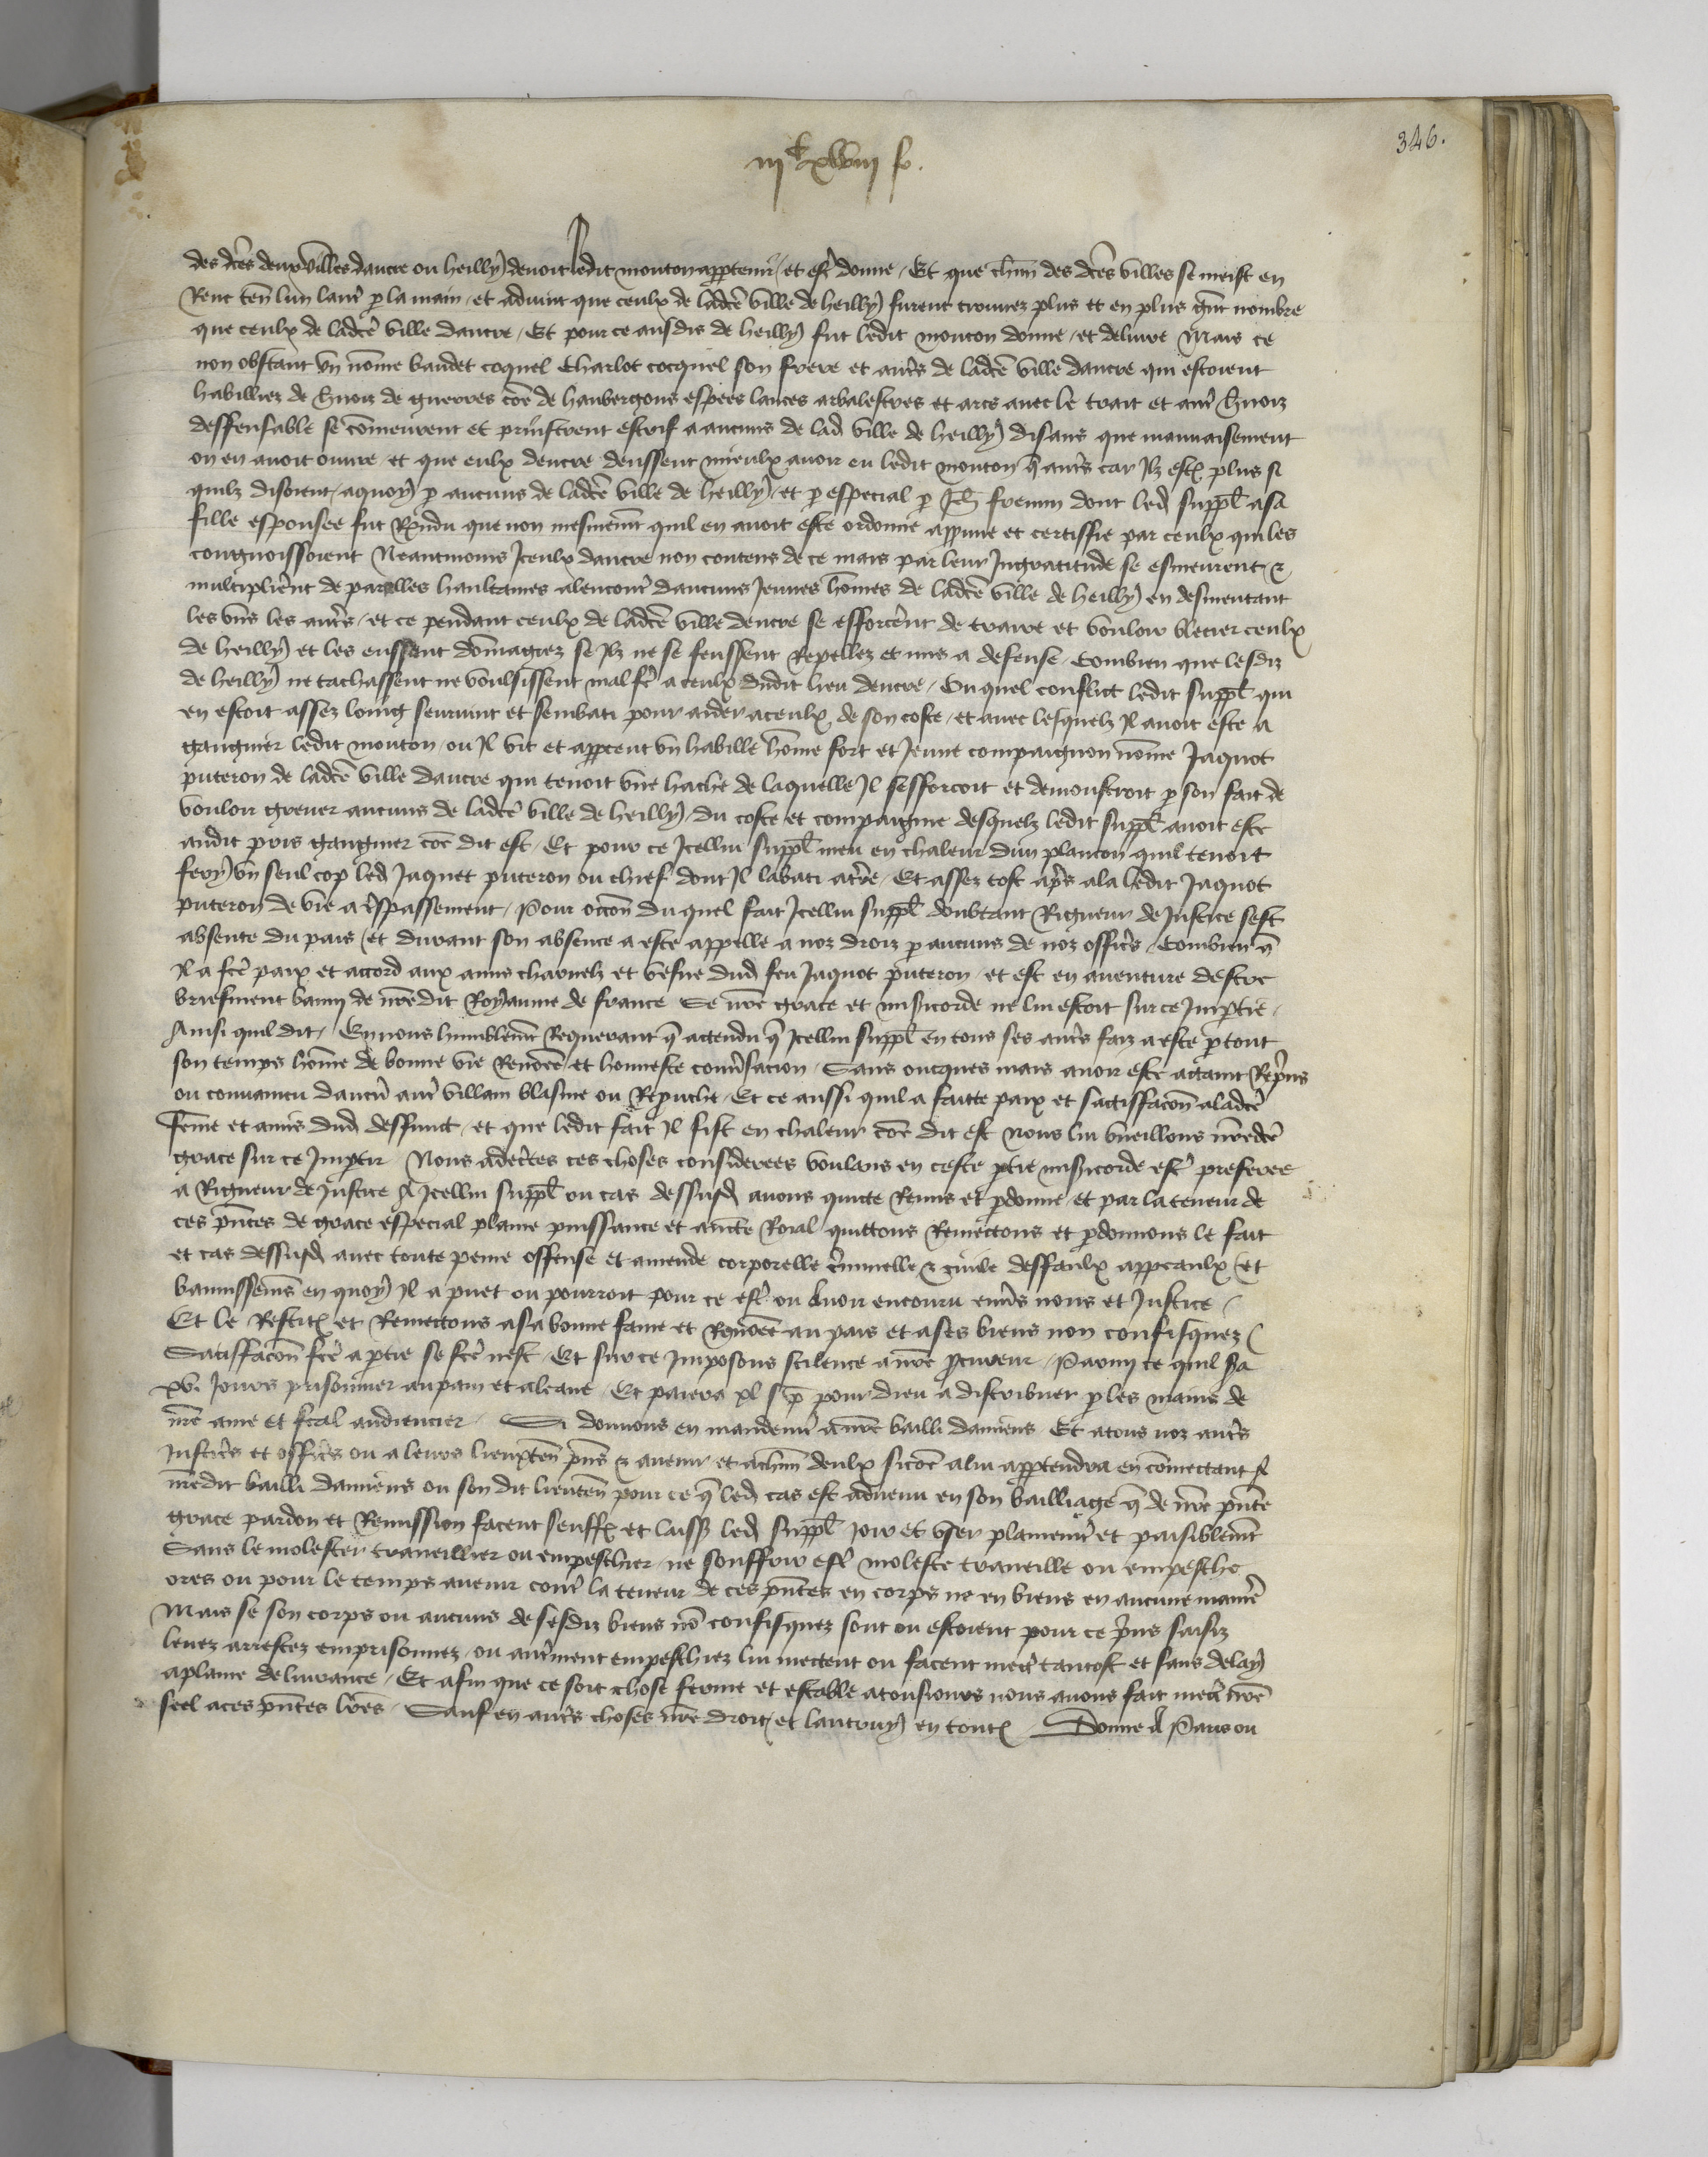 346.
iijc xlviij f.
des dces deux villes dancre ou heilly devoit ledit mouton appartenir / et estre donne / Et que chun des dces villes se meist en
Renc ten lun lautre p la main / et advint que ceulx de ladce ville de heilly furent trouvez plus et en plus gnt nombre
que ceulx de ladce ville dancre / Et pour ce ausdis de heilly fut ledit mouton donne / et delivre Mais ce
non obstant un nomme baudet coquel Charlot cocquel son frere et autres de ladce ville dancre qui estoient
habilliez de harnoiz de guerres come de haubergons espees lances arbalestres et arcs avec le trait et autre harnoiz
deffensable se comeurent et prindrent estrif a aucuns de lad ville de heilly disans que mauvaisement
on en avoit ouvre et que eulx dencre deussent mieulx avoir eu ledit mouton q autres car Ilz est plus si
quilz disoient / aquoy p aucuns de ladce ville de heilly / et p especial p Jeh fremin dont led suppl a sa
fille espousee fut Rpndu que non mesmemt quil en avoit este ordonne appunc et certiffie par ceulx qui les
congnoissoient Neantmoins Iceulx dancre non contens de ce mais par leur Ingratitude se esmeurent &
multiplierent de parolles haultaines alencontre daucuns Jeunes homes de ladce ville de heilly en desmentant
les uns les autres / et ce pendant ceulx de ladce ville dencre se efforcerent de traire et vouloir blecier ceulx
de heilly et les eussent domagiez se Ilz ne se feussent Repellez et mis a defense / Combien que lesdiz
de heilly ne tachassent ne voulsissent mal fe a ceulx dudit lieu dencre / Ou quel conflict ledit suppl qui
en estoit assez loing seurvint et sembati pour aider aceulx de son coste / et avec lesquelz Il avoit este a
gaugnier ledit mouton / ou Il vit et appceut un habille home fort et Jeune compaignon nome Jaquot
puteron de ladce ville dancre qui tenoit une hache de laquelle Il sefforcoit et demonstroit p son fait de
vouloir grever aucuns de ladce ville de heilly / du coste et compaignie desquelz ledit suppl avoit este
audit pris gaugnier coe dit est / Et pour ce Icellui suppl meu en chaleur dun plancon quil tenoit
fery un seul cop led Jaquet puteron ou chief dont Il labati atre / Et assez tost apres ala ledit Jaquot
puteron de vie a trespassement / Pour occon du quel fait Icellui suppl doubtant Rigueur de Justice sest
absente du pais / et durant son absence a este appelle a noz droiz p aucuns de noz offices / Combien q
Il a fce paix et accord aux amis charnelz et vesve dud feu Jaquot puteron / et est en aventure destre
briefment banny de nredit Royaume de france Se nre grace et misicorde ne lui estoit sur ce Imptie /
Ainsi quil dit / En nous humblemt Requerant q actendu q Icellui suppl en tous ses autres faiz a este p tout
son temps home de bonne vie Renomee et honneste conversacion / Sans oncques mais avoir este actaint Repris
ou convaincu daucun autre villain blasme ou Reprouche / Et ce aussi quil a faicte paix et sattisfacon aladce
feme et amis dud deffunct / et que ledit fait Il fist en chaleur coe dit est Nous lui vueillons nredce
grace sur ce Imptir Nous adecertes ces choses considerees voulans en ceste ptie misicorde estre preferee
a Rigueur de Justice A Icellui suppl ou cas dessusd avons quicte Remis et pdonne et par la teneur de
ces pntes de grace especial plaine puissance et aucte Roial quittons Remectons et pdonnons le fait
et cas dessusd avec toute peine offense et amende corporelle criminelle & civile deffaulx appeaulx / et
bannissemens en quoy Il a puet ou pourroit pour ce estre ou avoir encouru envers nous et Justice /
Et le Restit et Remectons a sa bonne fame et Renomee au pais et a ses biens non confisquez /
Satisfacon fce a ptie se fce nest / Et sur ce Imposons scilence a nre procureur / Parmi ce quil sera
xv Jours prisonnier au pain et aleaue / Et paiera xl s p pour dieu a distribuer p les mains de
nre ame et feal audiencier / Si donnons en mandemt a nre bailli damiens Et atous noz autres
Justices et offices ou a leurs lieuxten pns & avenir et achun deulx sicoe a lui apptendra en comectant se
nredit bailli damiens ou son dit lieuten pour ce q led cas est advenu en son bailliage q de nre pnte
grace pardon et Remission facent seuff et laiss led suppl joir et user plainemt et paisiblemt
Sans le molester traveillier ou empeschier ne souffrir estre moleste traveille ou empesche
ores ou pour le temps avenir contre la teneur de ces pntes en corps ne en biens en aucune maniere
Mais se son corps ou aucuns de sesdiz biens no confisquez sont ou estoient pour ce prins saisiz
levez arrestez emprisonnez ou autrement empeschiez lui mectent ou facent mectre tantost et sans delay
aplaine delivrance / Et afin que ce soit chose ferme et estable atousjours nous avons fait mectre nre
seel aces pntes lres / Sauf en autres choses nre droit / et lautruy en tout / Donne A Paris ou